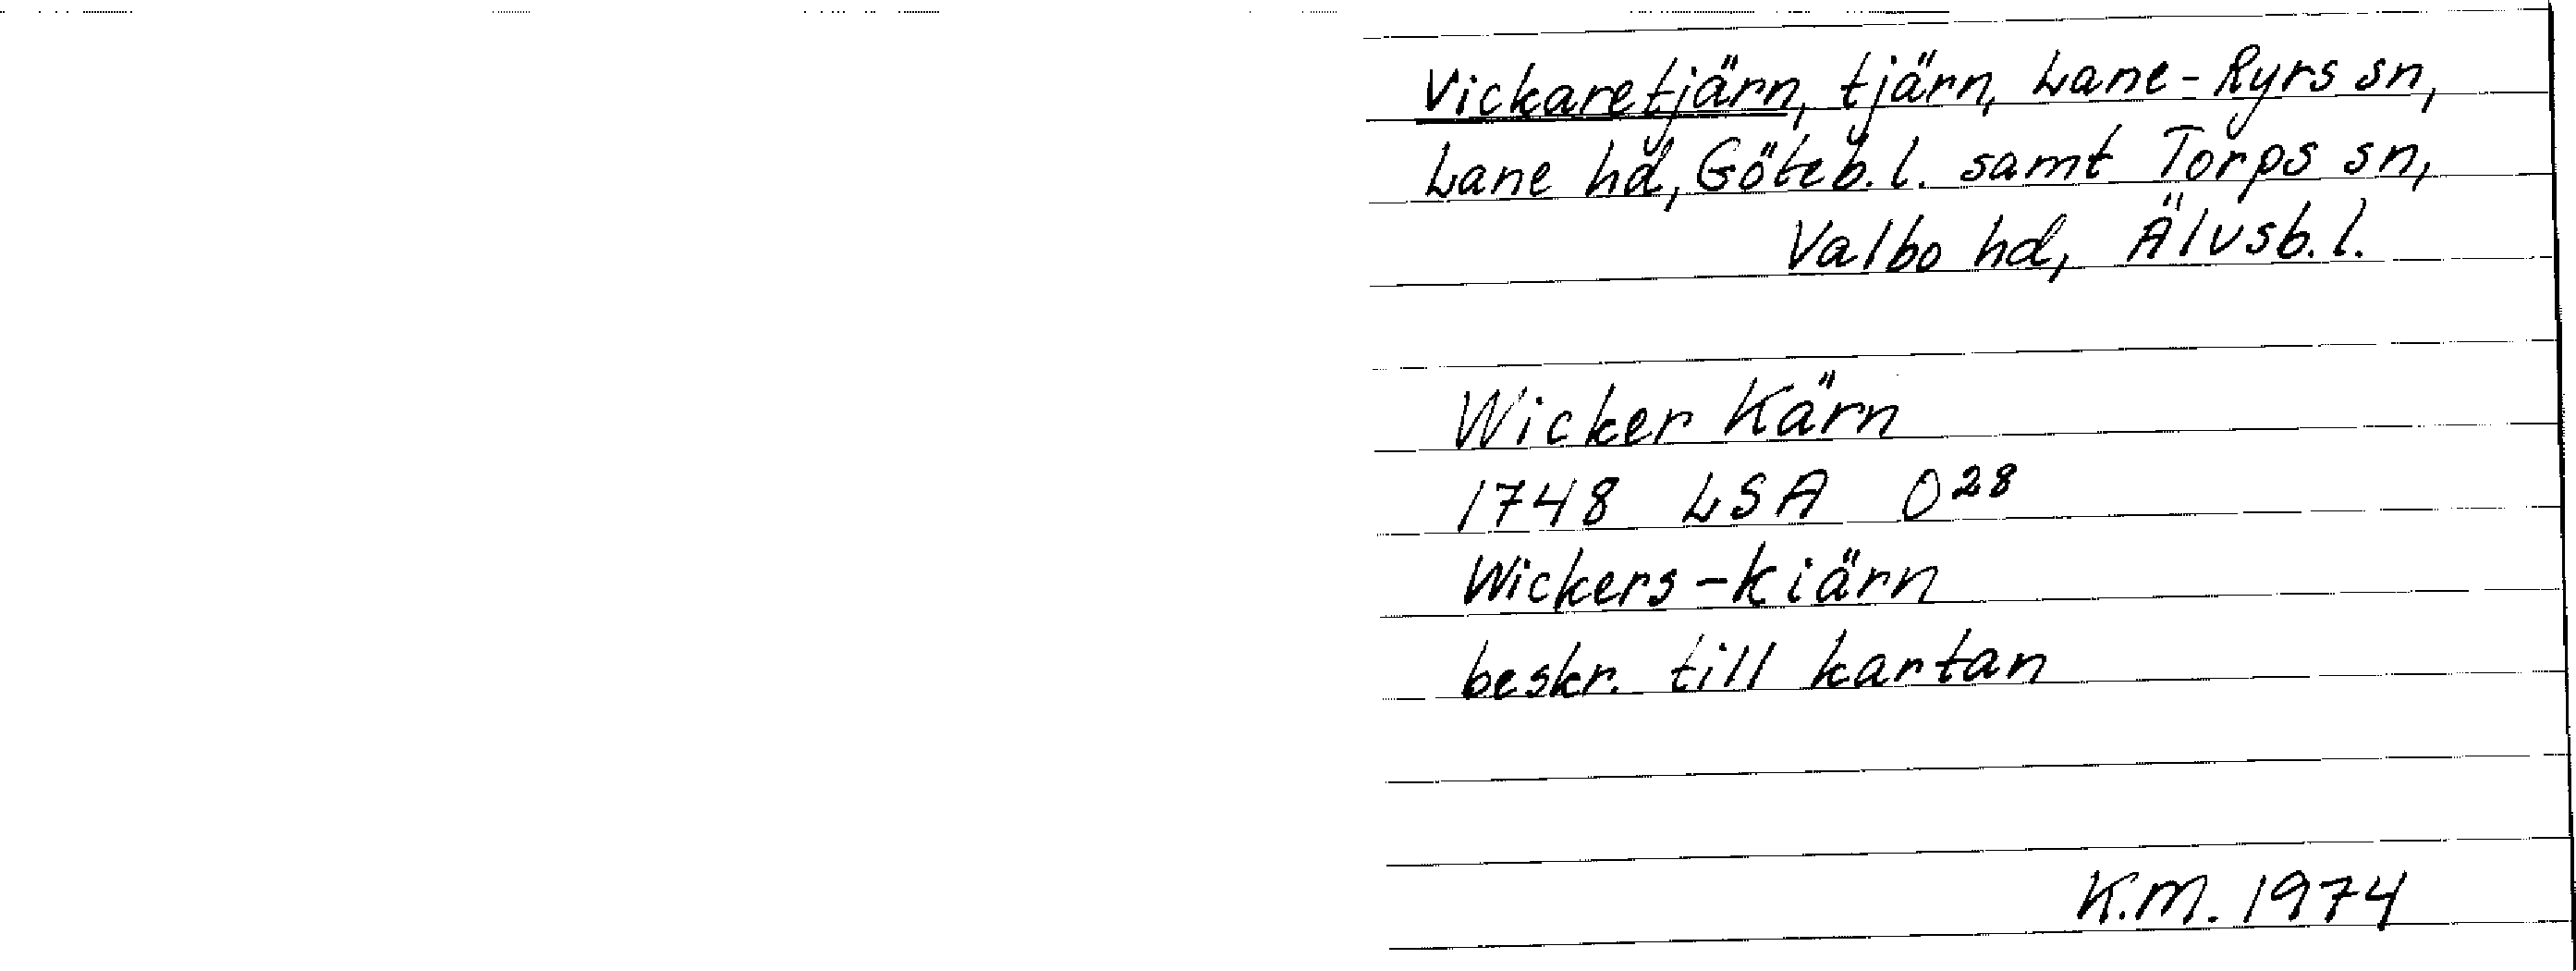 Vickaretjärn, tjärn, Lane-Ryrs sn,
Lane hd, Göteb. l. samt Torps sn,
Valbo hd, Älvsb. l.
Wicker Kärn
1748 LSA O²⁸
Wickers-kiärn
beskr. till kartan
K.M. 1974